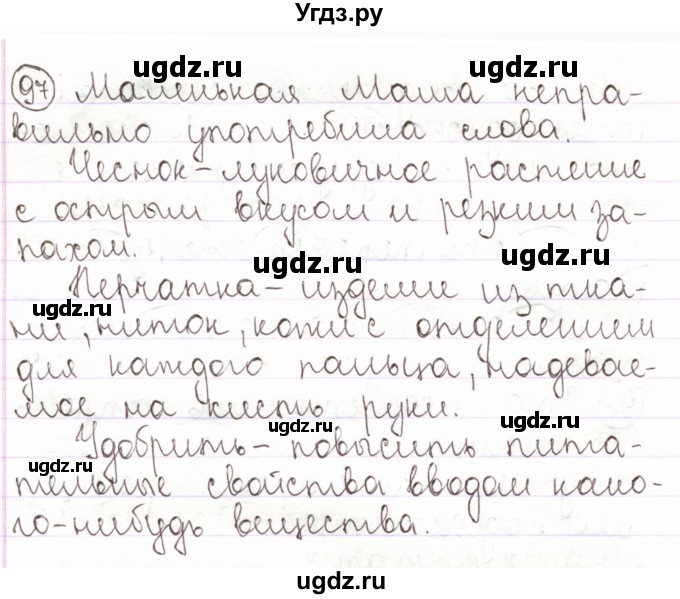 Угдз.ру
ugdz.ru ugdz.ru
97 Маленькая Маша непра-
вильно употребила слова.
Чеснок – луковичное растение
с острым вкусом и резким за-
пахом.
ugdz.ru ugdz.ru
Перчатка – изделие из тка-
ни, ниток, кожи с отделением
для каждого пальца, надевае-
мое на кисть руки.
ugdz.ru ugdz.ru
Удобрить – повысить пита-
тельные свойства вводом како-
го-нибудь вещества.
ugdz.ru ugdz.ru
ugdz.ru